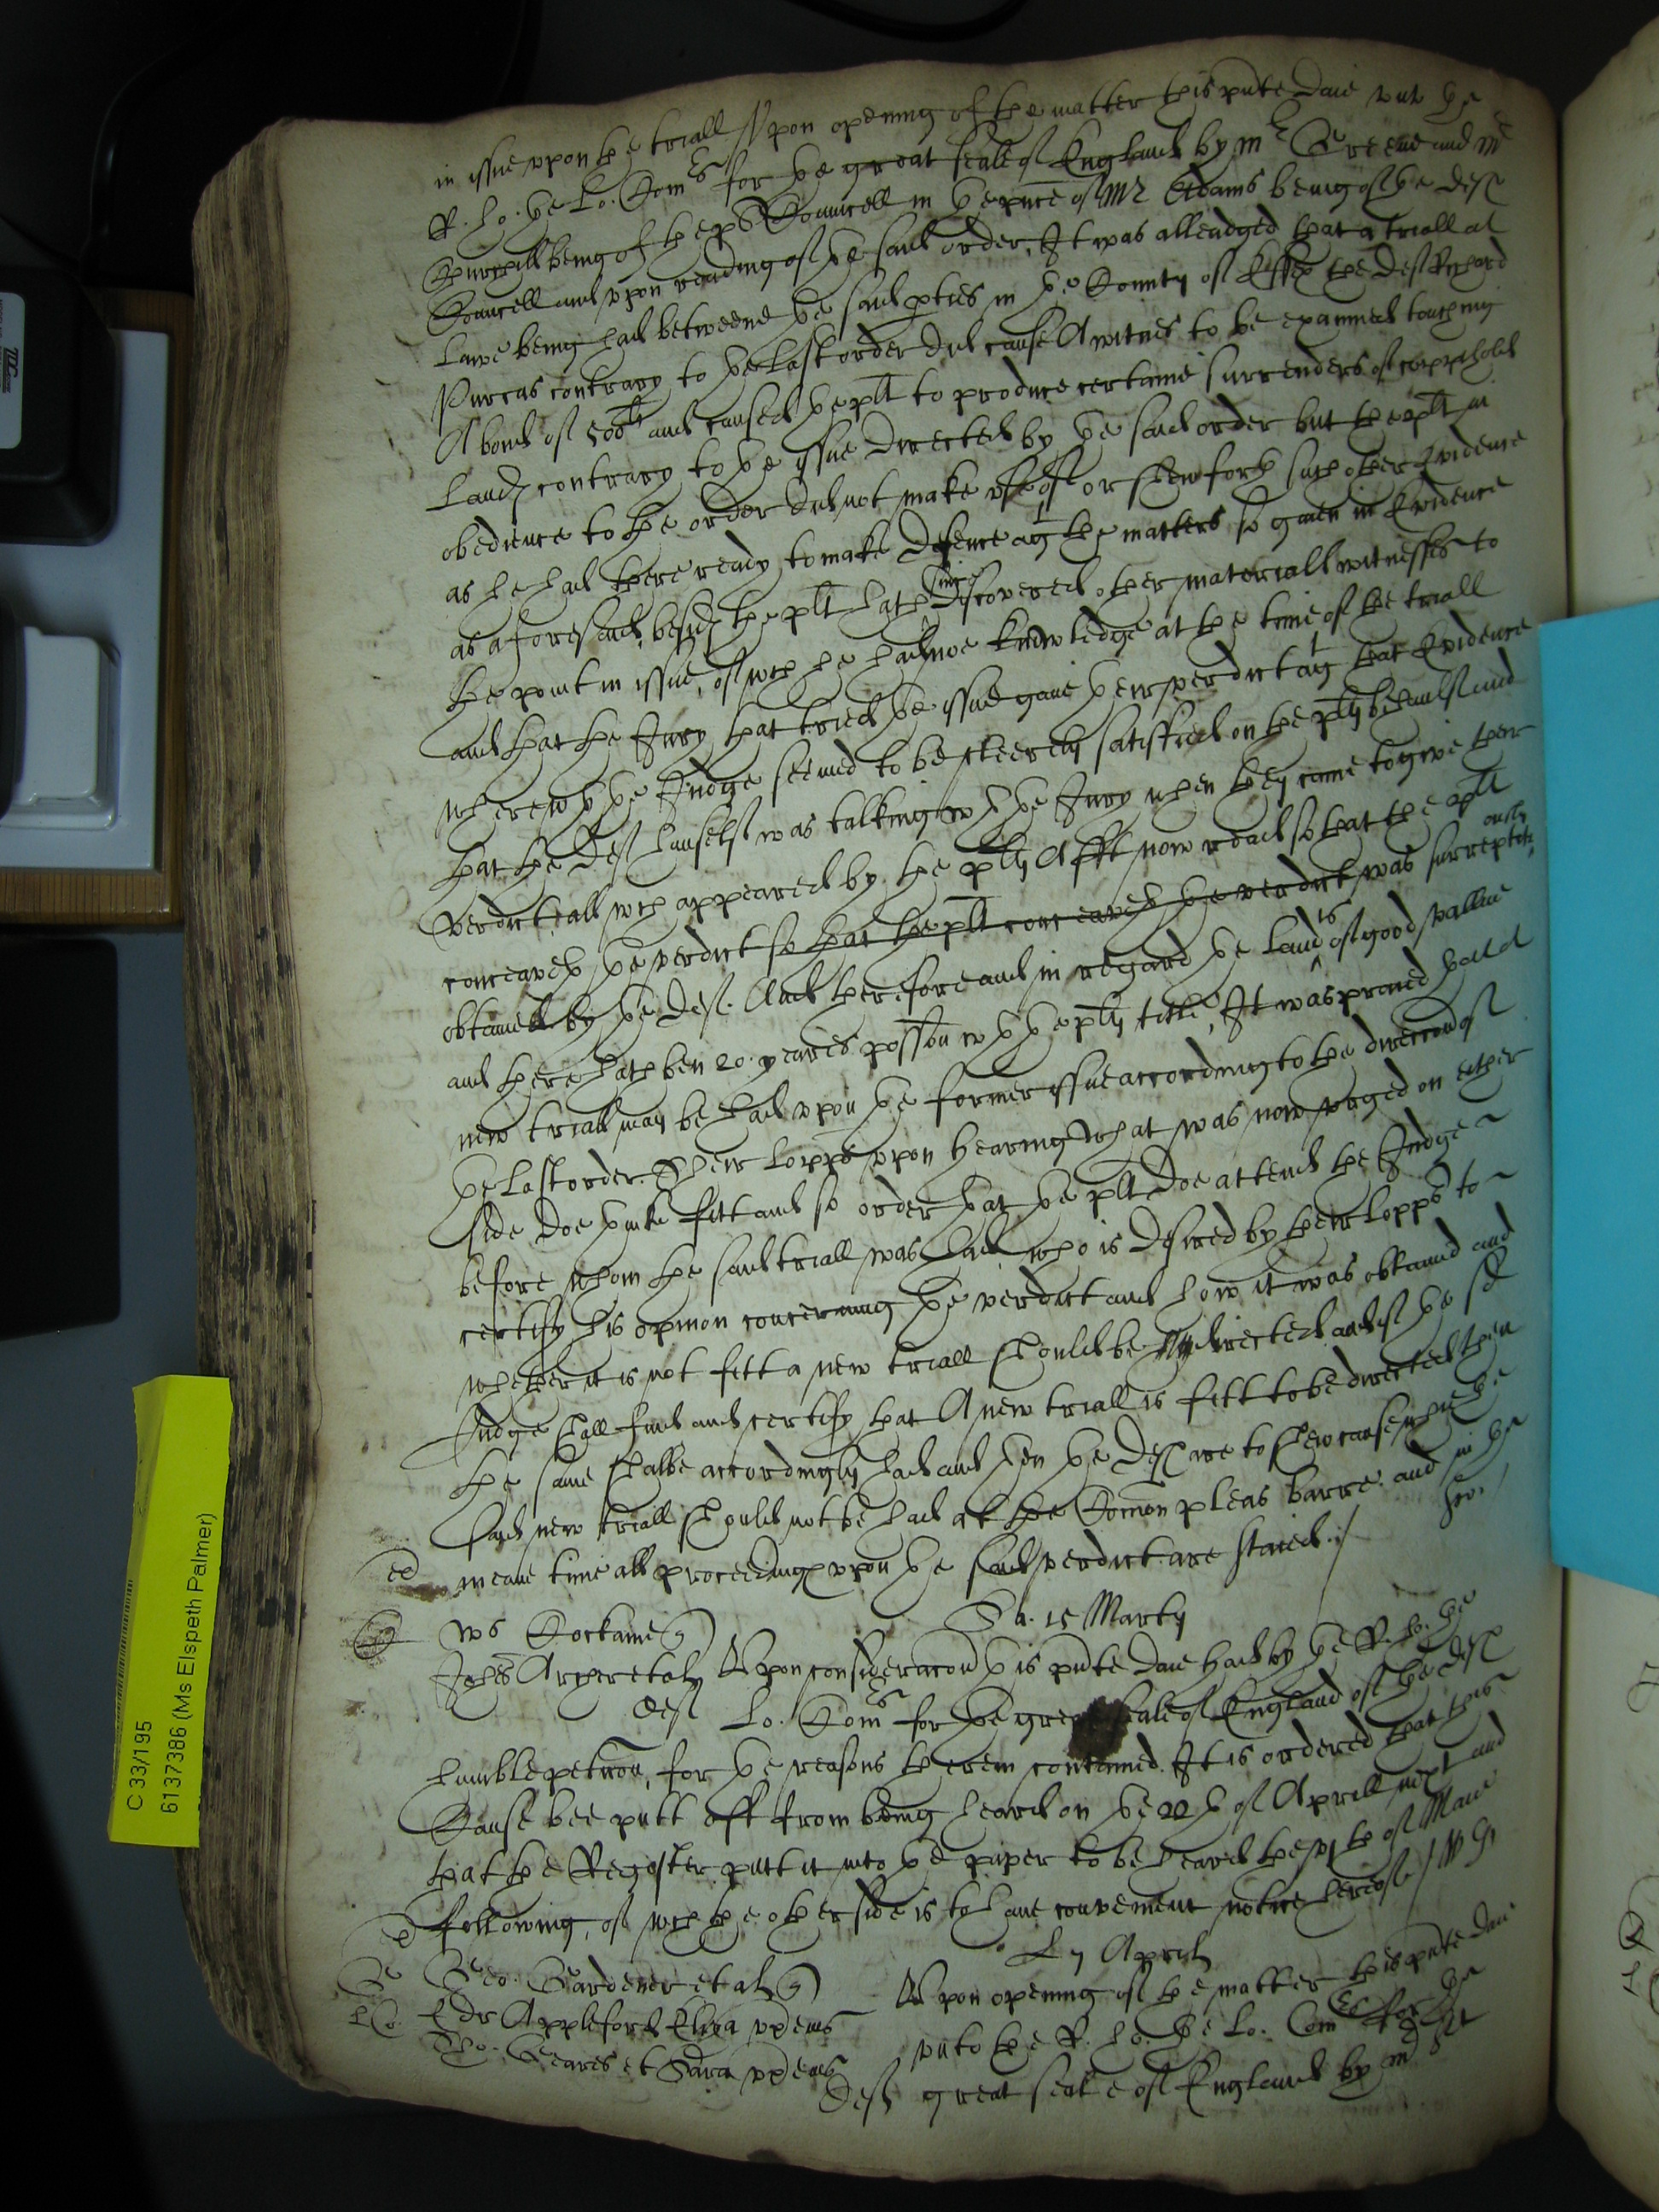 in issue upon the triall Upon opening of the matter this pnte daie unto the
R. ho. the Lo. Comrs for the great seale of England by Mr Greene and Mr
Churchill being of the pls Councell in the pnce of Mr Adams being of the defts
Councell and upon reading of the said order, It was alleadged that a triall at
Lawe being had betweene the said pties in the County of Essex the deft Richard
Purcas contrary to the last order did cause A witnes to be examined touching
A bond of 500li and caused the plt to produce certaine surrenders of coppiehold
Lands contrary to the issue directed by the said order but the plt in
obedience to the order did not make use of or shew forth such other Evidence
as he had there ready to make defence agt the matters so given in Evidence
as aforesaid, besides the plt hath since discovered other materiall witnesses to
the point in issue, of wch he had noe knowledge at the time of the triall
and that the Jury that tried the issue gave their verdict agt that Evidence
wherewth the Judge seemed to be cleerely satisfied on the plts behaulf and
that the deft himself was talking wth the Jury when they came to give their
verdict, all wch appeared by the plts Afft now read so that the plt
conceaveth the verdict so that the plt conceaveth the verdict was surreptitiously
obtained by the deft. And therefore and in regard the Land is of good vallue
and there hath ben 20 yeares possion wth the plts title, It was praied that a
new triall may be had upon the former issue according to the direccon of
the last order. Their Lopps upon hearing what was now urged on either
side doe thinke fitt and so order that the plt doe attend the Judge
before whom the said triall was had who is desired by their Lopps to
certify his opinion concerning the verdict and how it was obtained and
whether it is not fitt a new triall should be directed and if the sd
Judge shall find and certify that A new triall is fitt to be directed then
the same shalbe accordingly had and then the defts are to shew cause why the
said new triall should not be had at the Comon pleas barre. and in the
meane time all proceedings upon the said verdict are staied./
Sa. 15 Martij
Ws Cockaine
Johes Archer et alij Upon consideracon this pnte daie had by the R. ho. the
deft Lo. Comrs for the great seale of England of the defts
humble peticon, for the reasons therein contained. It is ordered that this
Cause bee putt off from being heard on the 22th of Aprill next and
that the Register putt it into the paper to be heard the 6th of Maie
following, of wch the other side is to have convenient notice hereof/
Ly 7 Aprilis
Geo. Gardener et al
Edr Appleford Eliza ux eius Upon opening of the matter this pnte daie
Tho. Geares et Sara ux eius unto the R. ho. the Lo. Comrs for the
deft great seale of England by Mr
C 33/195
6137386 (Ms Elspeth Palmer)